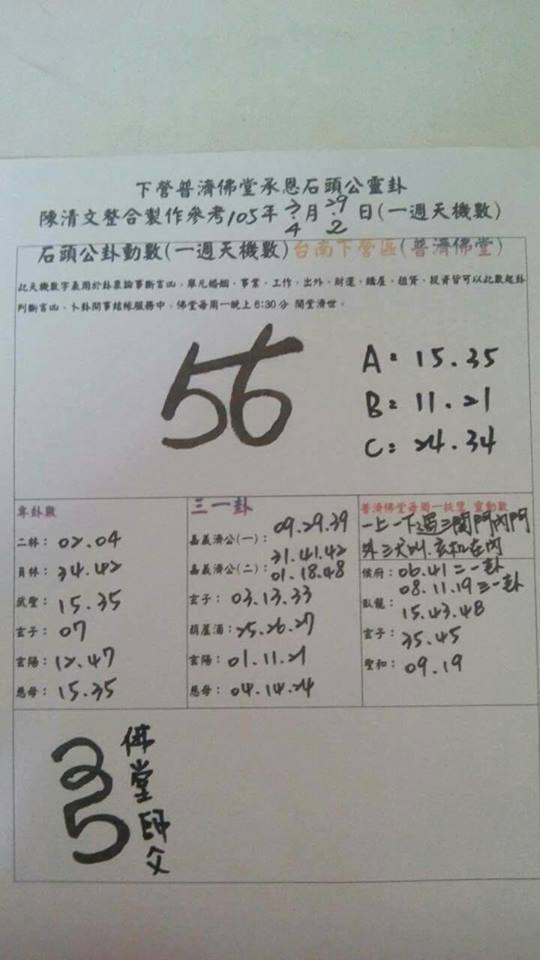 下營普濟佛堂承恩石頭公靈卦
陳清文整合製作參考105年3/4月29/2日(一週天機數)
石頭公卦動數(一週天機數)台南下營區(普濟佛堂)
此天機數字義用於卦象論事斷吉凶，舉凡婚姻、事業、工作、出外、財運、購屋、租賃、投資皆可以此數起卦
判斷吉凶、卜卦問事結緣服務中，佛堂每周一晚上6:30分 開堂濟世。
56
A= 15.35
B= 11.21
C= 24.34
專卦數
二林: 02.04
員林: 34.42
武聖: 15.35
玄子: 07
玄陽: 12.47
慈母: 15.35
三一卦
嘉義濟公(一): 09.29.39
嘉義濟公(二): 31.41.42
01.18.48
玄子: 03.13.33
葫蘆酒: 25.26.27
玄陽: 01.11.21
慈母: 04.14.24
普濟佛堂每周一扶鸞 靈動數
一上一下過三關門內門
外三犬叫.衣和在內
侯府: 06.41=二一卦
08.11.19三一卦
臥龍: 15.43.48
玄子: 35.45
聖和: 09.19
35
佛堂師父